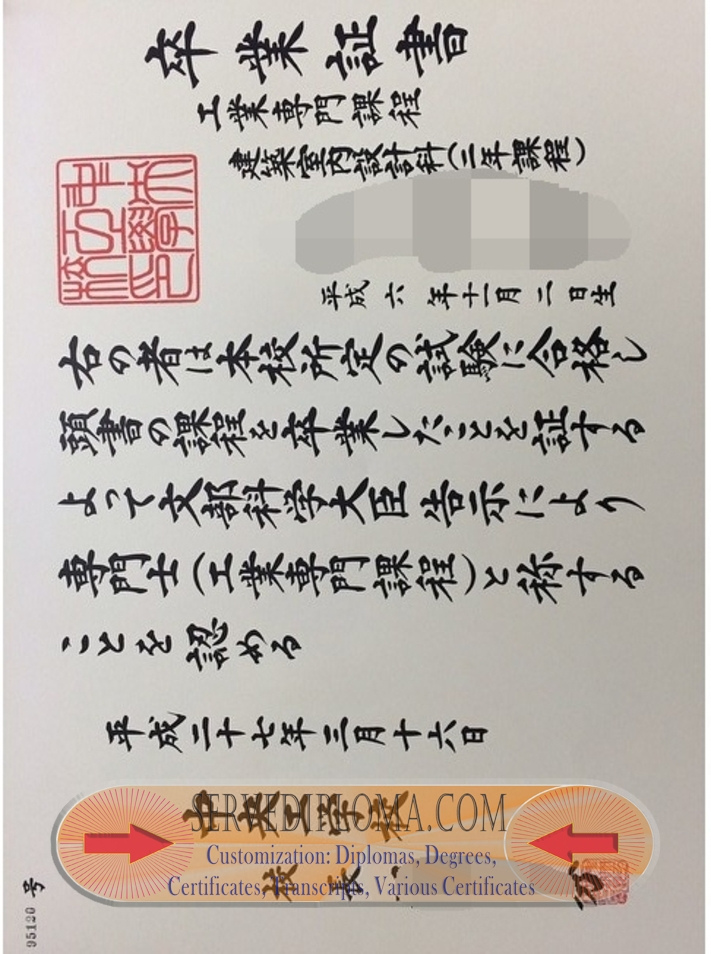 卒業証書
工業専門課程
建築室内設計科(二年課程)
平成六年十一月二日生
右の者は本校所定の試験に合格し
頭書の課程を卒業したことを証する
よって文部科学大臣告示により
専門士(工業専門課程)と称する
ことを認める
平成二十七年三月十六日
中央工学校
SERVEDIPLOMA.COM
Customization: Diplomas, Degrees,
Certificates, Transcripts, Various Certificates
校長
95120号